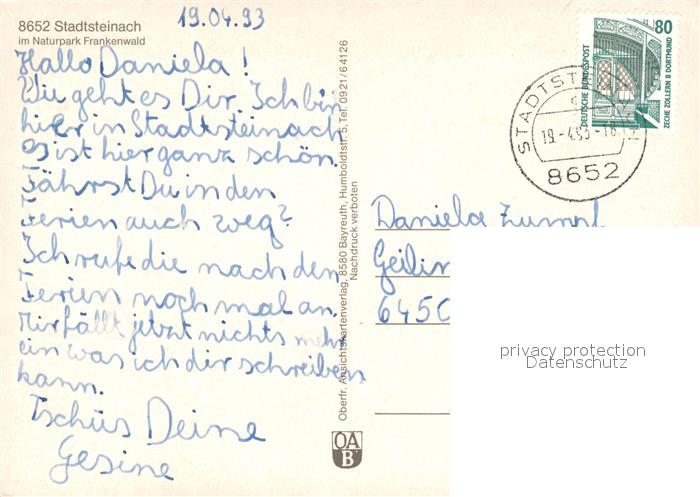 19.04.93
8652 Stadtsteinach
im Naturpark Frankenwald
Hallo Daniela!
Wie geht es Dir. Ich bin
hier in Stadtsteinach
Es ist hier ganz schön.
Fährst Du in den
Ferien auch weg?
Ich rufe die nach den
Ferien noch mal an.
Mir fällt jetzt nichts mehr
ein was ich dir schreiben
kann.
Tschüs Deine
Gesine
Oberfr. Ansichtskartenverlag, 8580 Bayreuth, Humboldtstr. 5, Tel. 0921/64126
Nachdruck verboten
OA
B
80
DEUTSCHE BUNDESPOST
ZECHE ZOLLERN II DORTMUND
STADTST
19.-4.93-18
8652
Daniela
Geilin
6450
privacy protection
Datenschutz